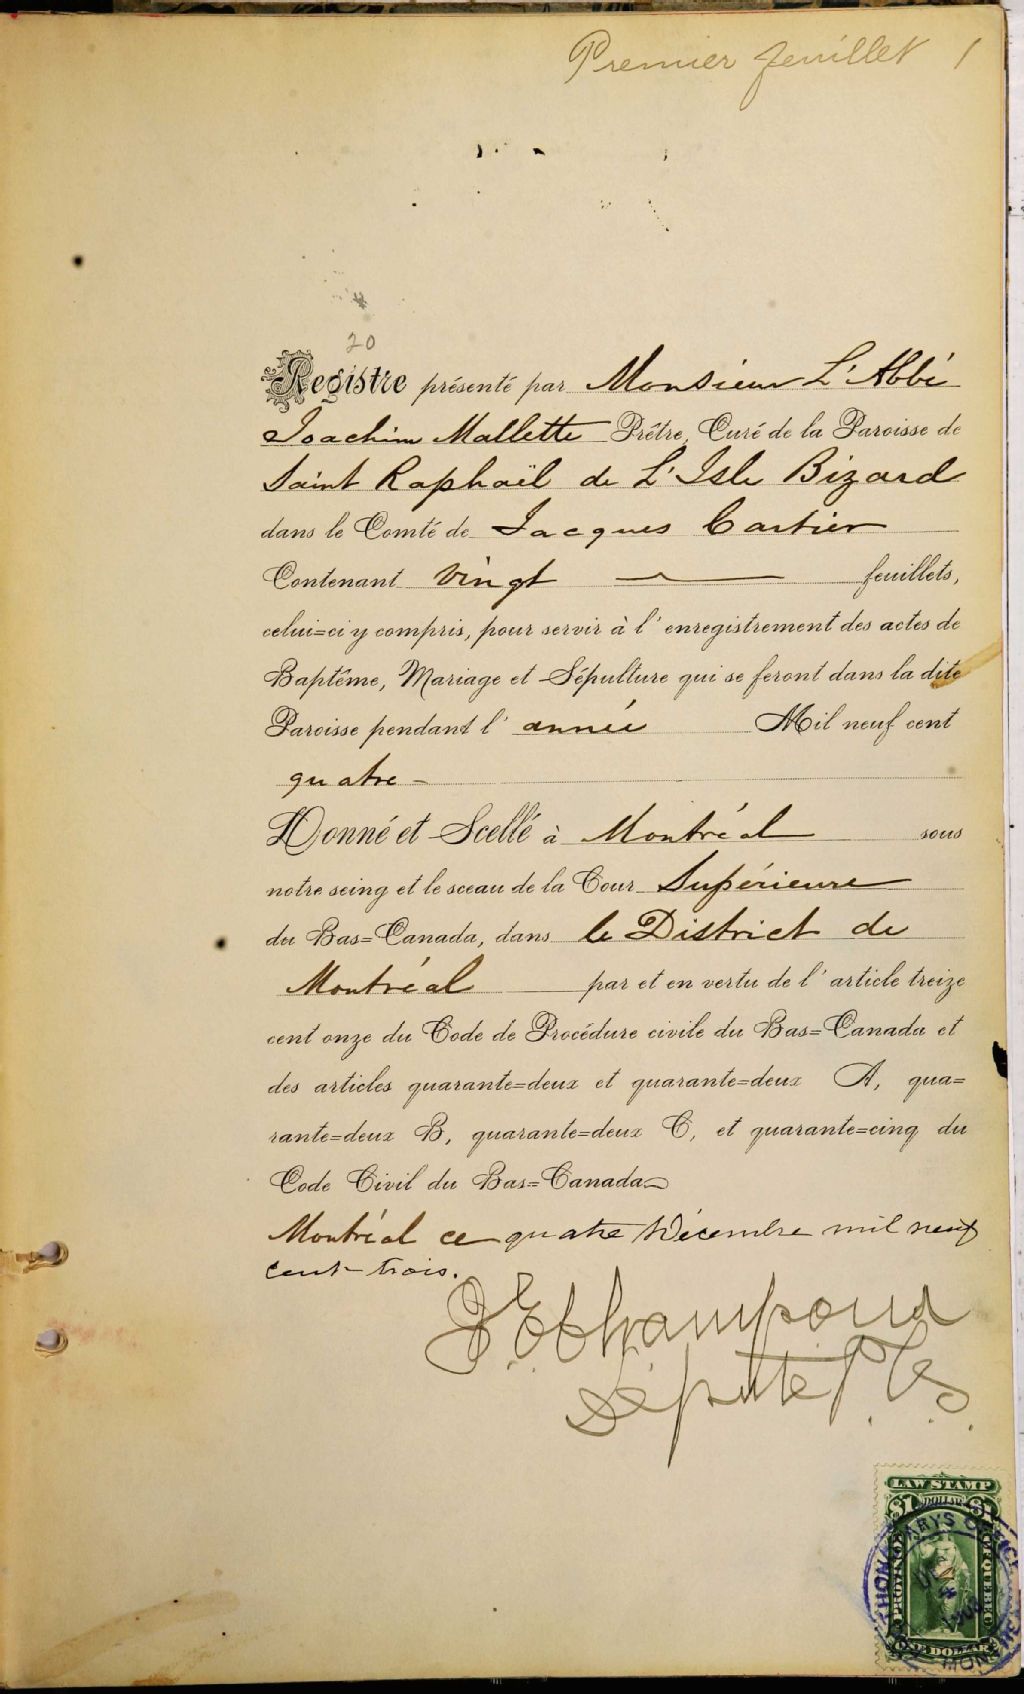 Premier feuillet 1
20
Registre présenté par Monsieur L'Abbé
Joachim Mallette Prêtre, Curé de la Paroisse de
Saint Raphaël de L'Isle Bizard
dans le Comté de Jacques Cartier
Contenant vingt feuillets,
celui=ci y compris, pour servir à l'enregistrement des actes de
Baptême, Mariage et Sépulture qui se feront dans la dite
Paroisse pendant l'année Mil neuf cent
quatre -
Donné et Scellé à Montréal sous
notre seing et le sceau de la Cour Supérieure
du Bas=Canada, dans le District de
Montréal par et en vertu de l'article treize
cent onze du Code de Procédure civile du Bas=Canada et
des articles quarante=deux et quarante=deux A, qua=
rante=deux B, quarante=deux C, et quarante=cinq du
Code Civil du Bas=Canada
Montréal ce quatre Décembre mil neuf
cent-trois.
Champoux
Député P.
LAW STAMP
$1 DOLLAR $1
PROVINCE QUEBEC
ONE DOLLAR
DEC 4